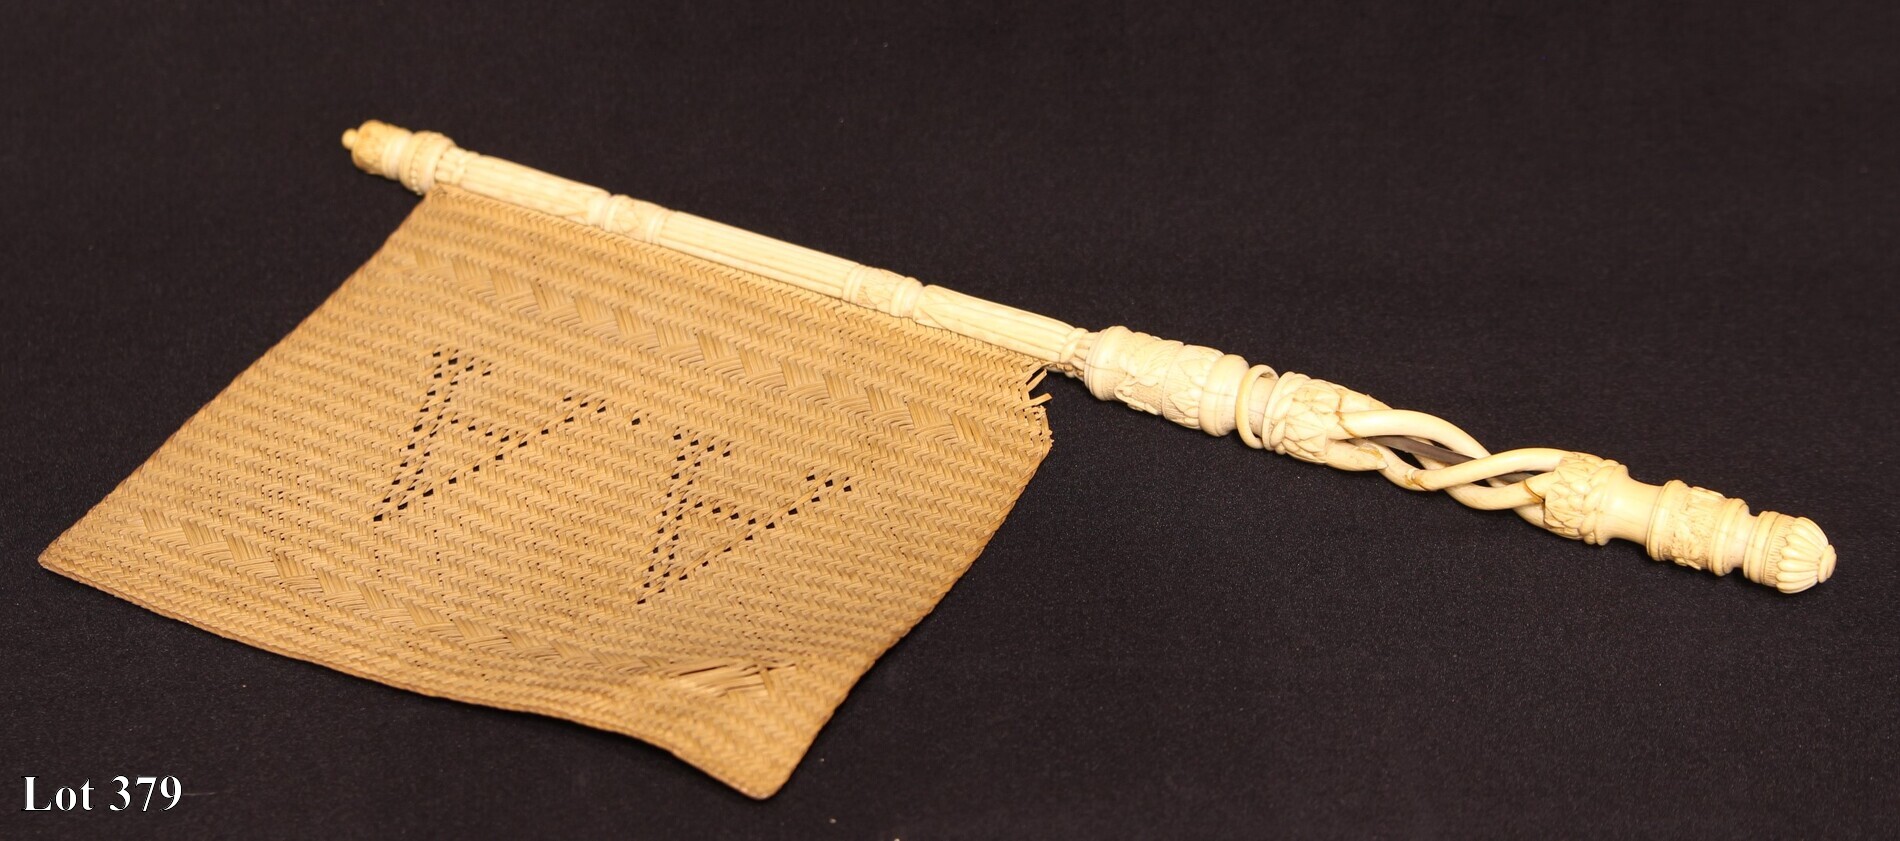 Lot 379